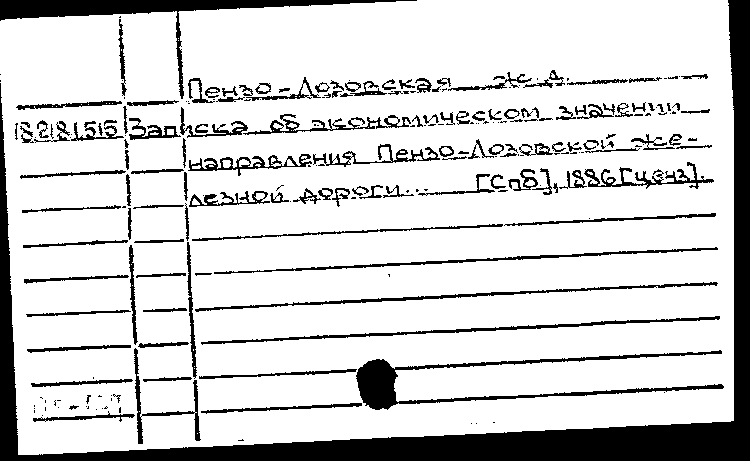 Пензо-Лозовская ж.д.
18.218.1.515 Записка об экономическом значении
направления Пензо-Лозовской же-
лезной дороги... [Спб], 1886 [ценз].